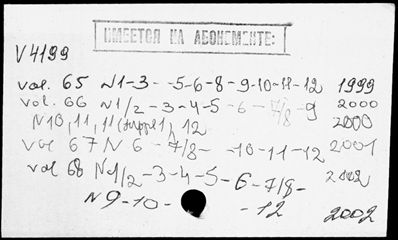 ИМЕЕТСЯ НА АБОНЕМЕНТЕ:
V4199
vol. 65 N1-3- -5-6-8-9-10-11-12 1999
vol. 66 N1/2-3-4-5-6-7/8-9 2000
N10, 11, 11(suppl1), 12 2000
vol 67 N 6 - 7/8- -10-11-12 2001
vol 68 N1/2-3-4-5-6-7/8- 2002
N9-10- -12 2002